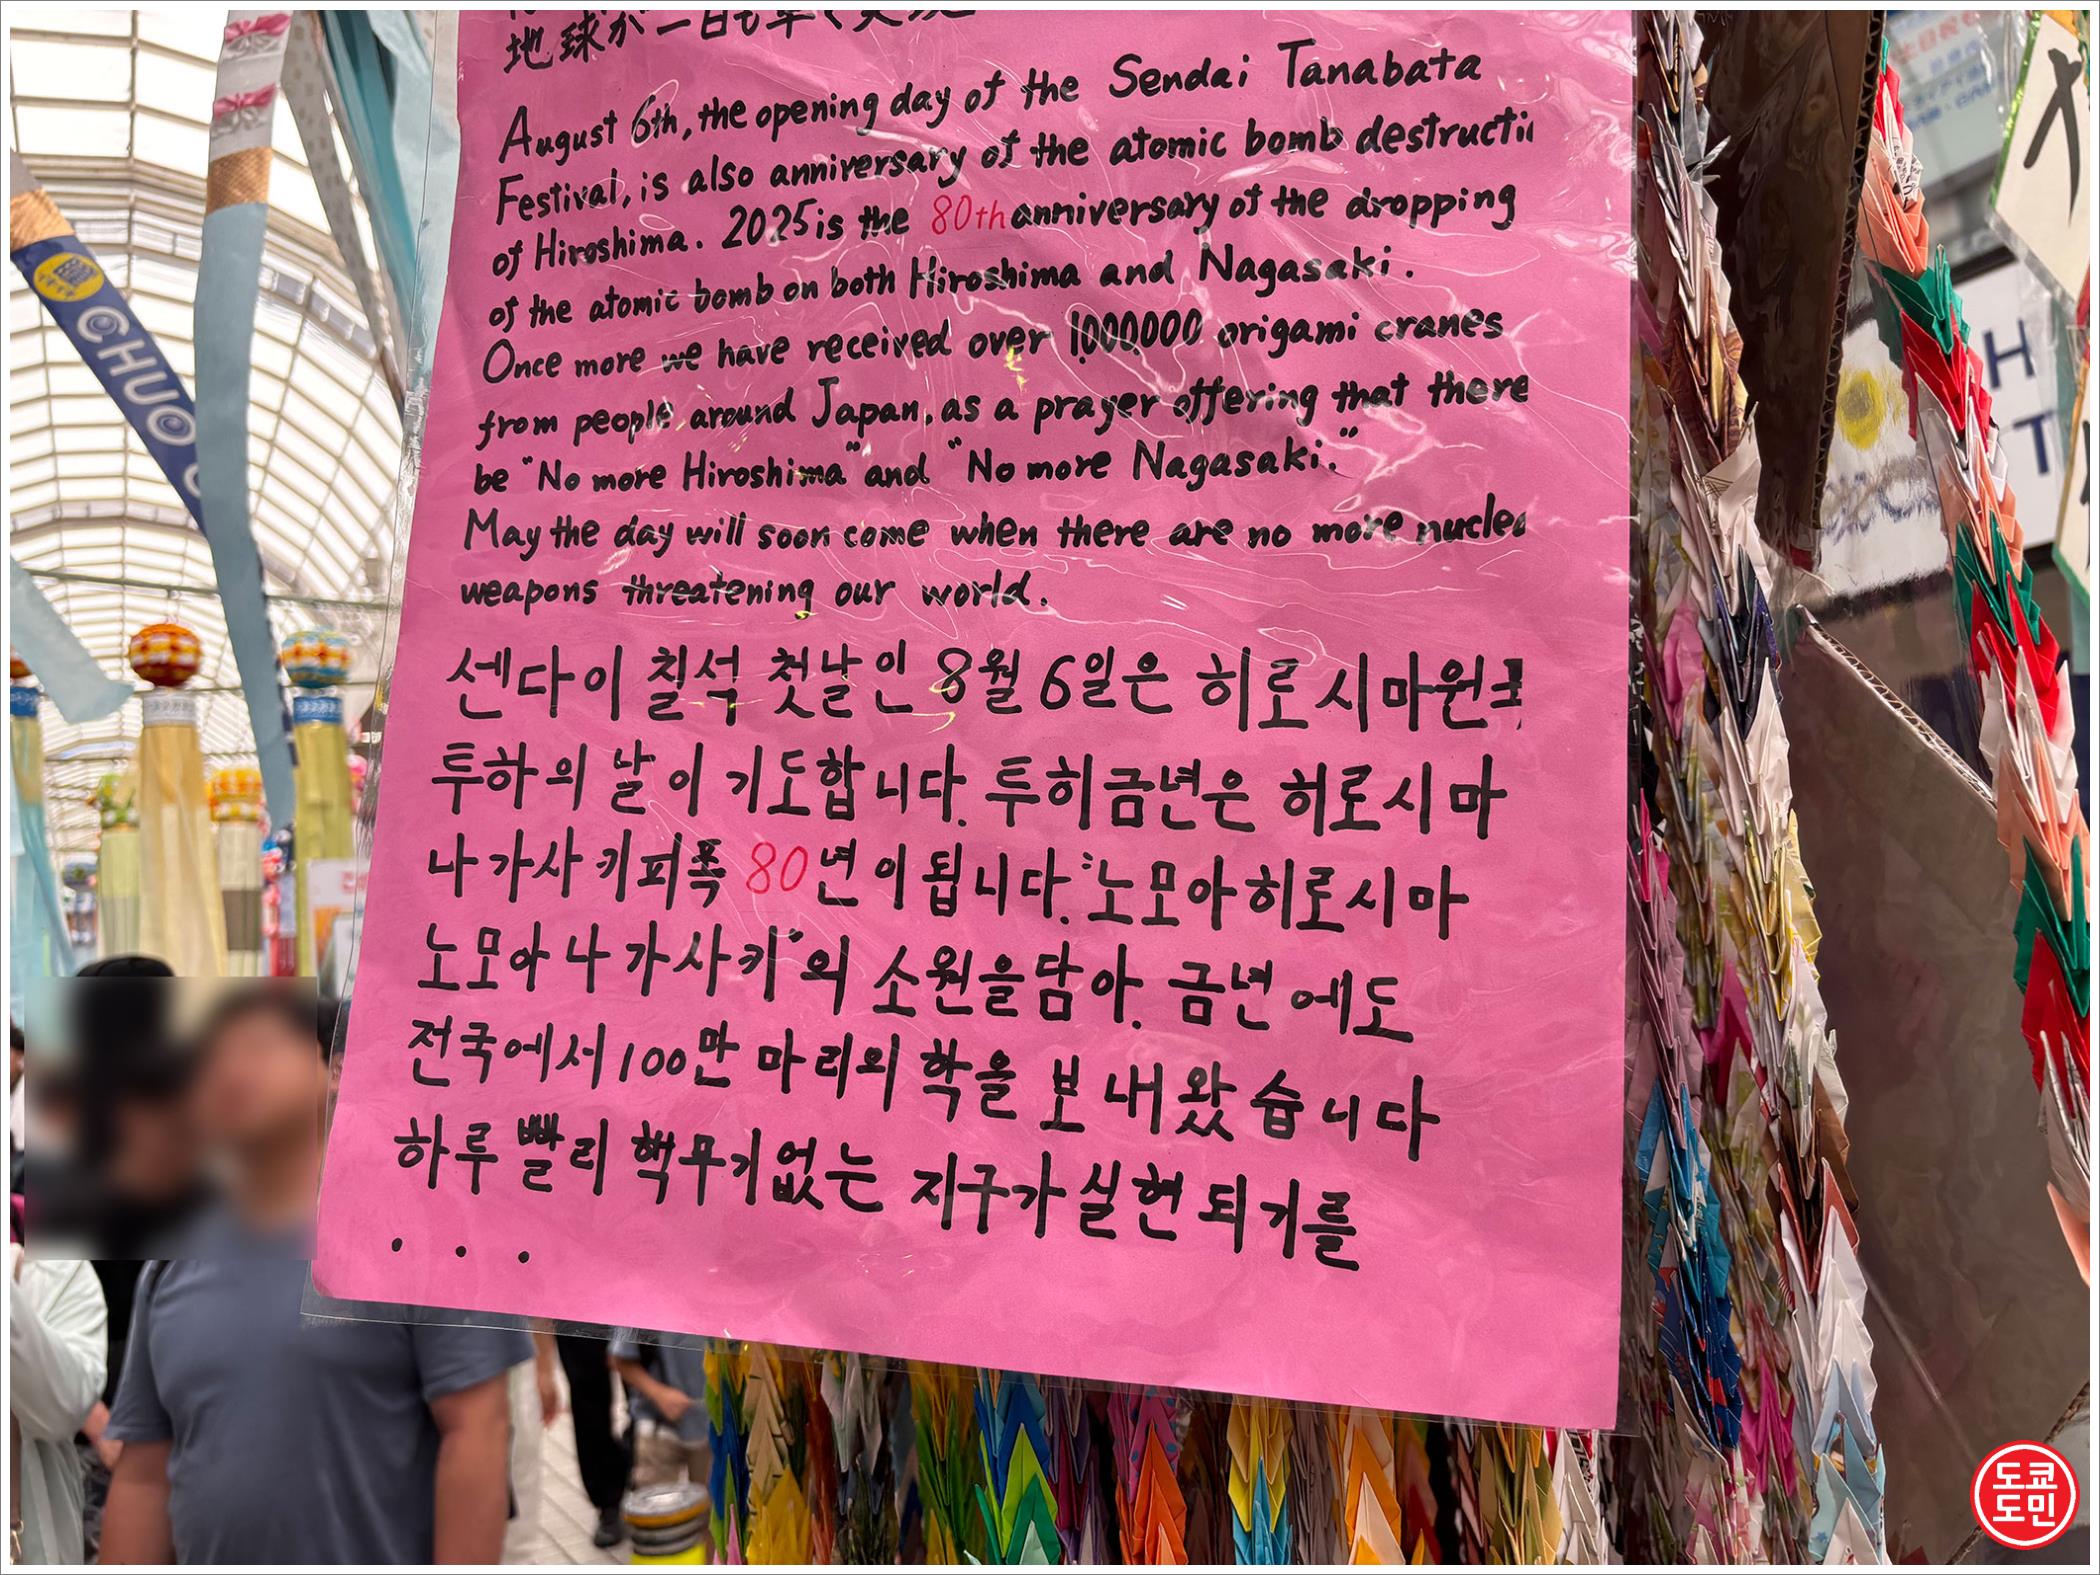 地球が一日も早く実現
August 6th, the opening day of the Sendai Tanabata
Festival, is also anniversary of the atomic bomb destructi
of Hiroshima. 2025 is the 80th anniversary of the dropping
of the atomic bomb on both Hiroshima and Nagasaki.
Once more we have received over 1,000,000 origami cranes
from people around Japan, as a prayer offering that there
be "No more Hiroshima" and "No more Nagasaki."
May the day will soon come when there are no more nuclea
weapons threatening our world.
센다이 칠석 첫날인 8월 6일은 히로시마원폭
투하의 날이기도합니다. 투히금년은 히로시마
나가사키피폭 80년이됩니다. "노모아히로시마
노모아나가사키"의 소원을담아. 금년에도
전국에서 100만 마리의 학을 보내왔습니다
하루빨리 핵무기없는 지구가실현되기를
. . .
CHUO
H
T
도쿄
도민